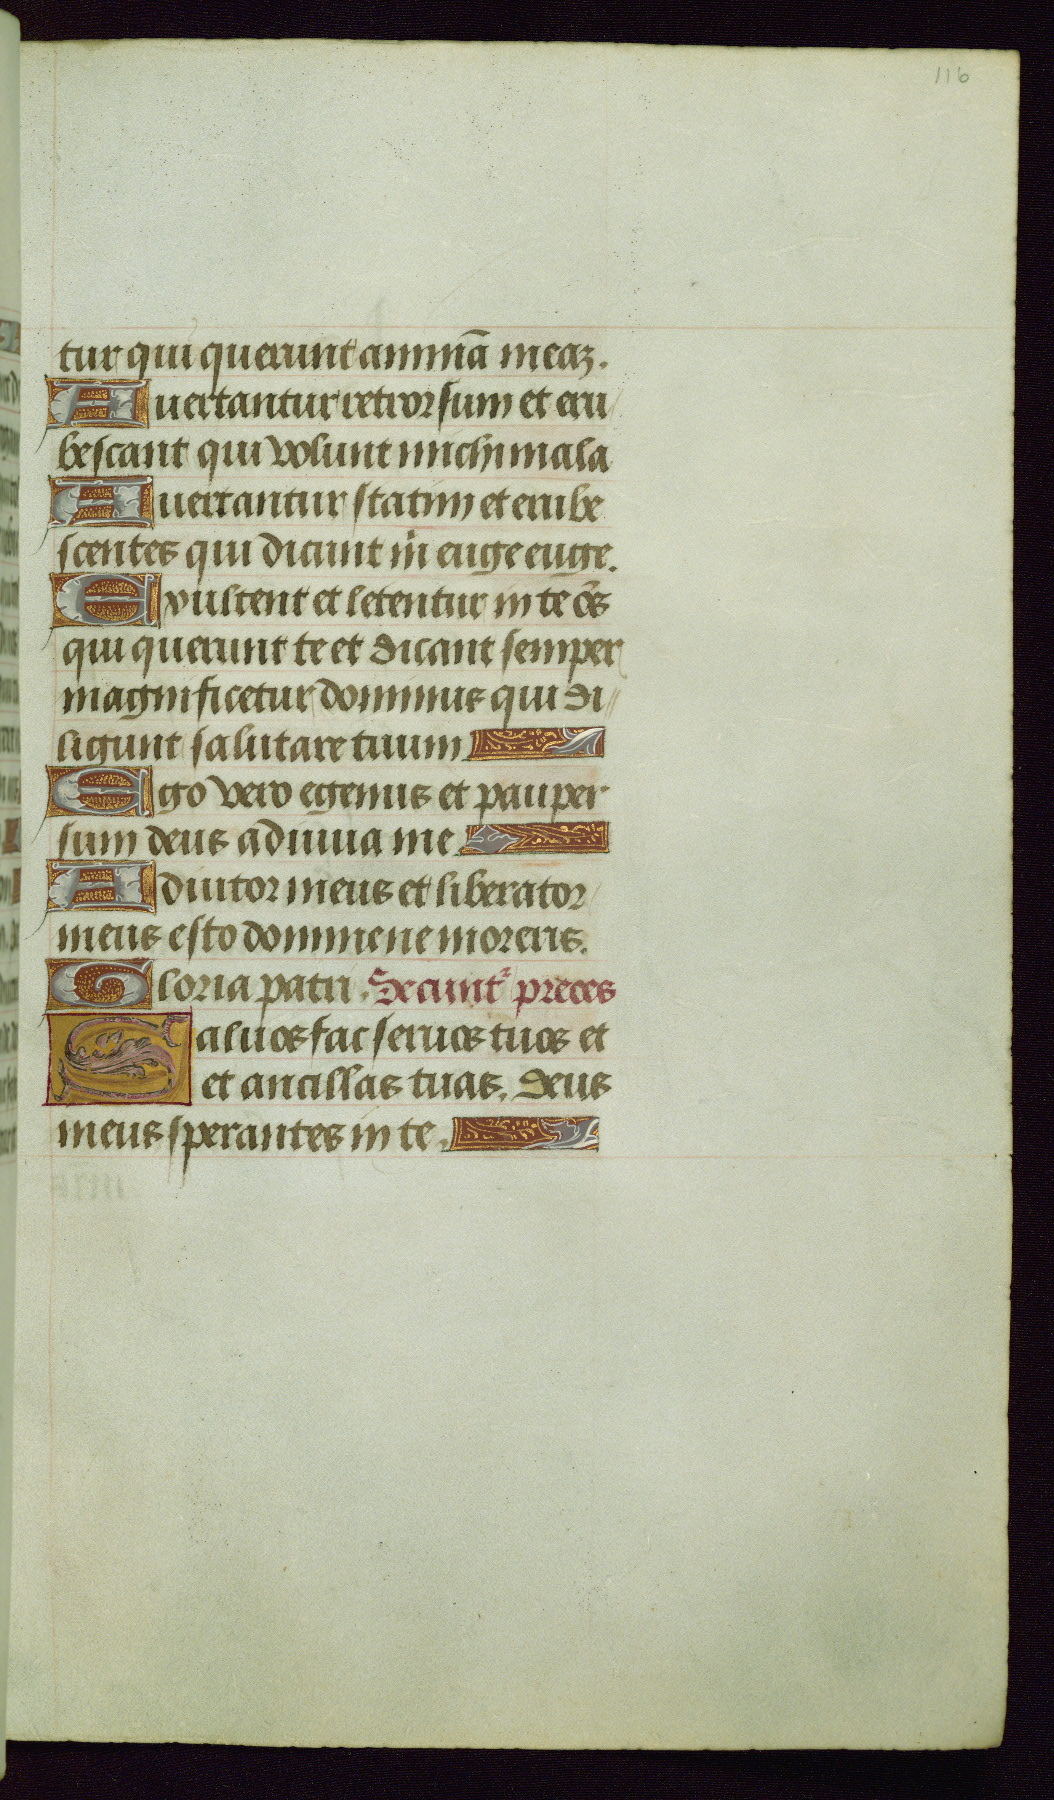 116
tur qui querunt animā meaʒ.
Auertantur retrorsum et eru
bescant qui volunt michi mala
Auertantur statim et erube
scentes qui dicunt m̄ euge euge.
Exultent et letentur in te oēs
qui querunt te et dicant semper
magnificetur dominus qui di
ligunt salutare tuum
Ego vero egenus et pauper
sum deus adiuua me
Adiutor meus et liberator
meus esto domine ne moreris.
Gloria patri. Secunt᷑ preces
Saluos fac seruos tuos et
et ancillas tuas. Deus
meus sperantes in te.